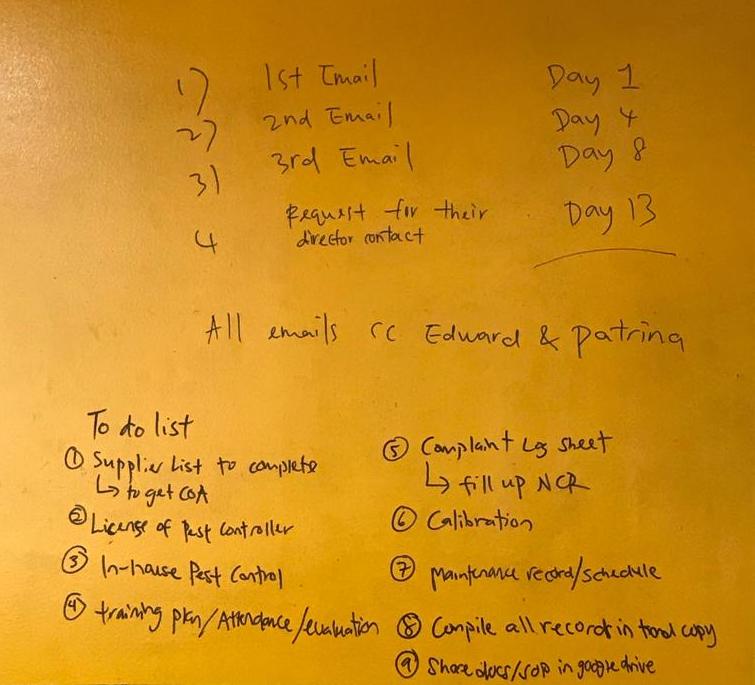 1) 1st Email Day 1
2) 2nd Email Day 4
3) 3rd Email Day 8
4 Request for their Day 13
director contact
All emails cc Edward & Patrina
To do list
① Supplier List to complete
↳ to get COA
② License of Pest Controller
③ In-house Pest Control
④ training plan/Attendance/evaluation
⑤ Complaint Log Sheet
↳ fill up NCR
⑥ Calibration
⑦ Maintenance record/schedule
⑧ Compile all record in copy
⑨ Share docs/SOP in google drive